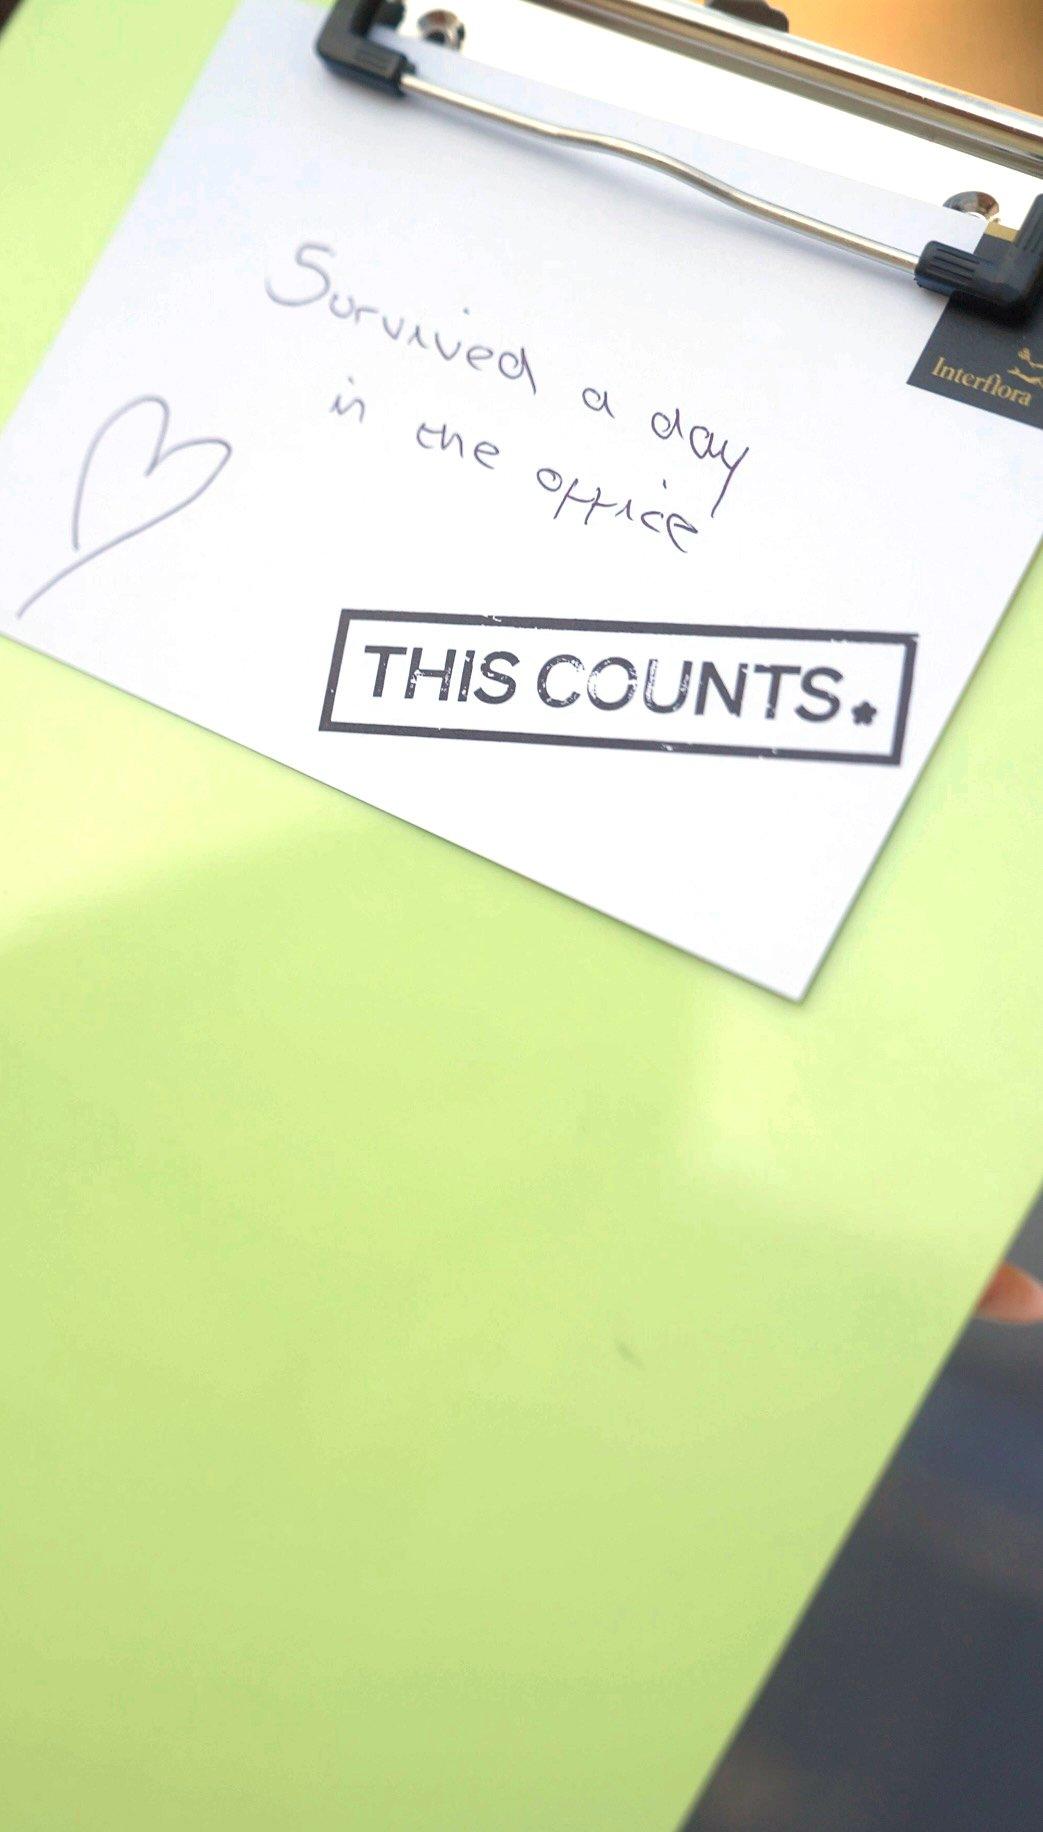 Interflora
Survived a day
in the office
THIS COUNTS.